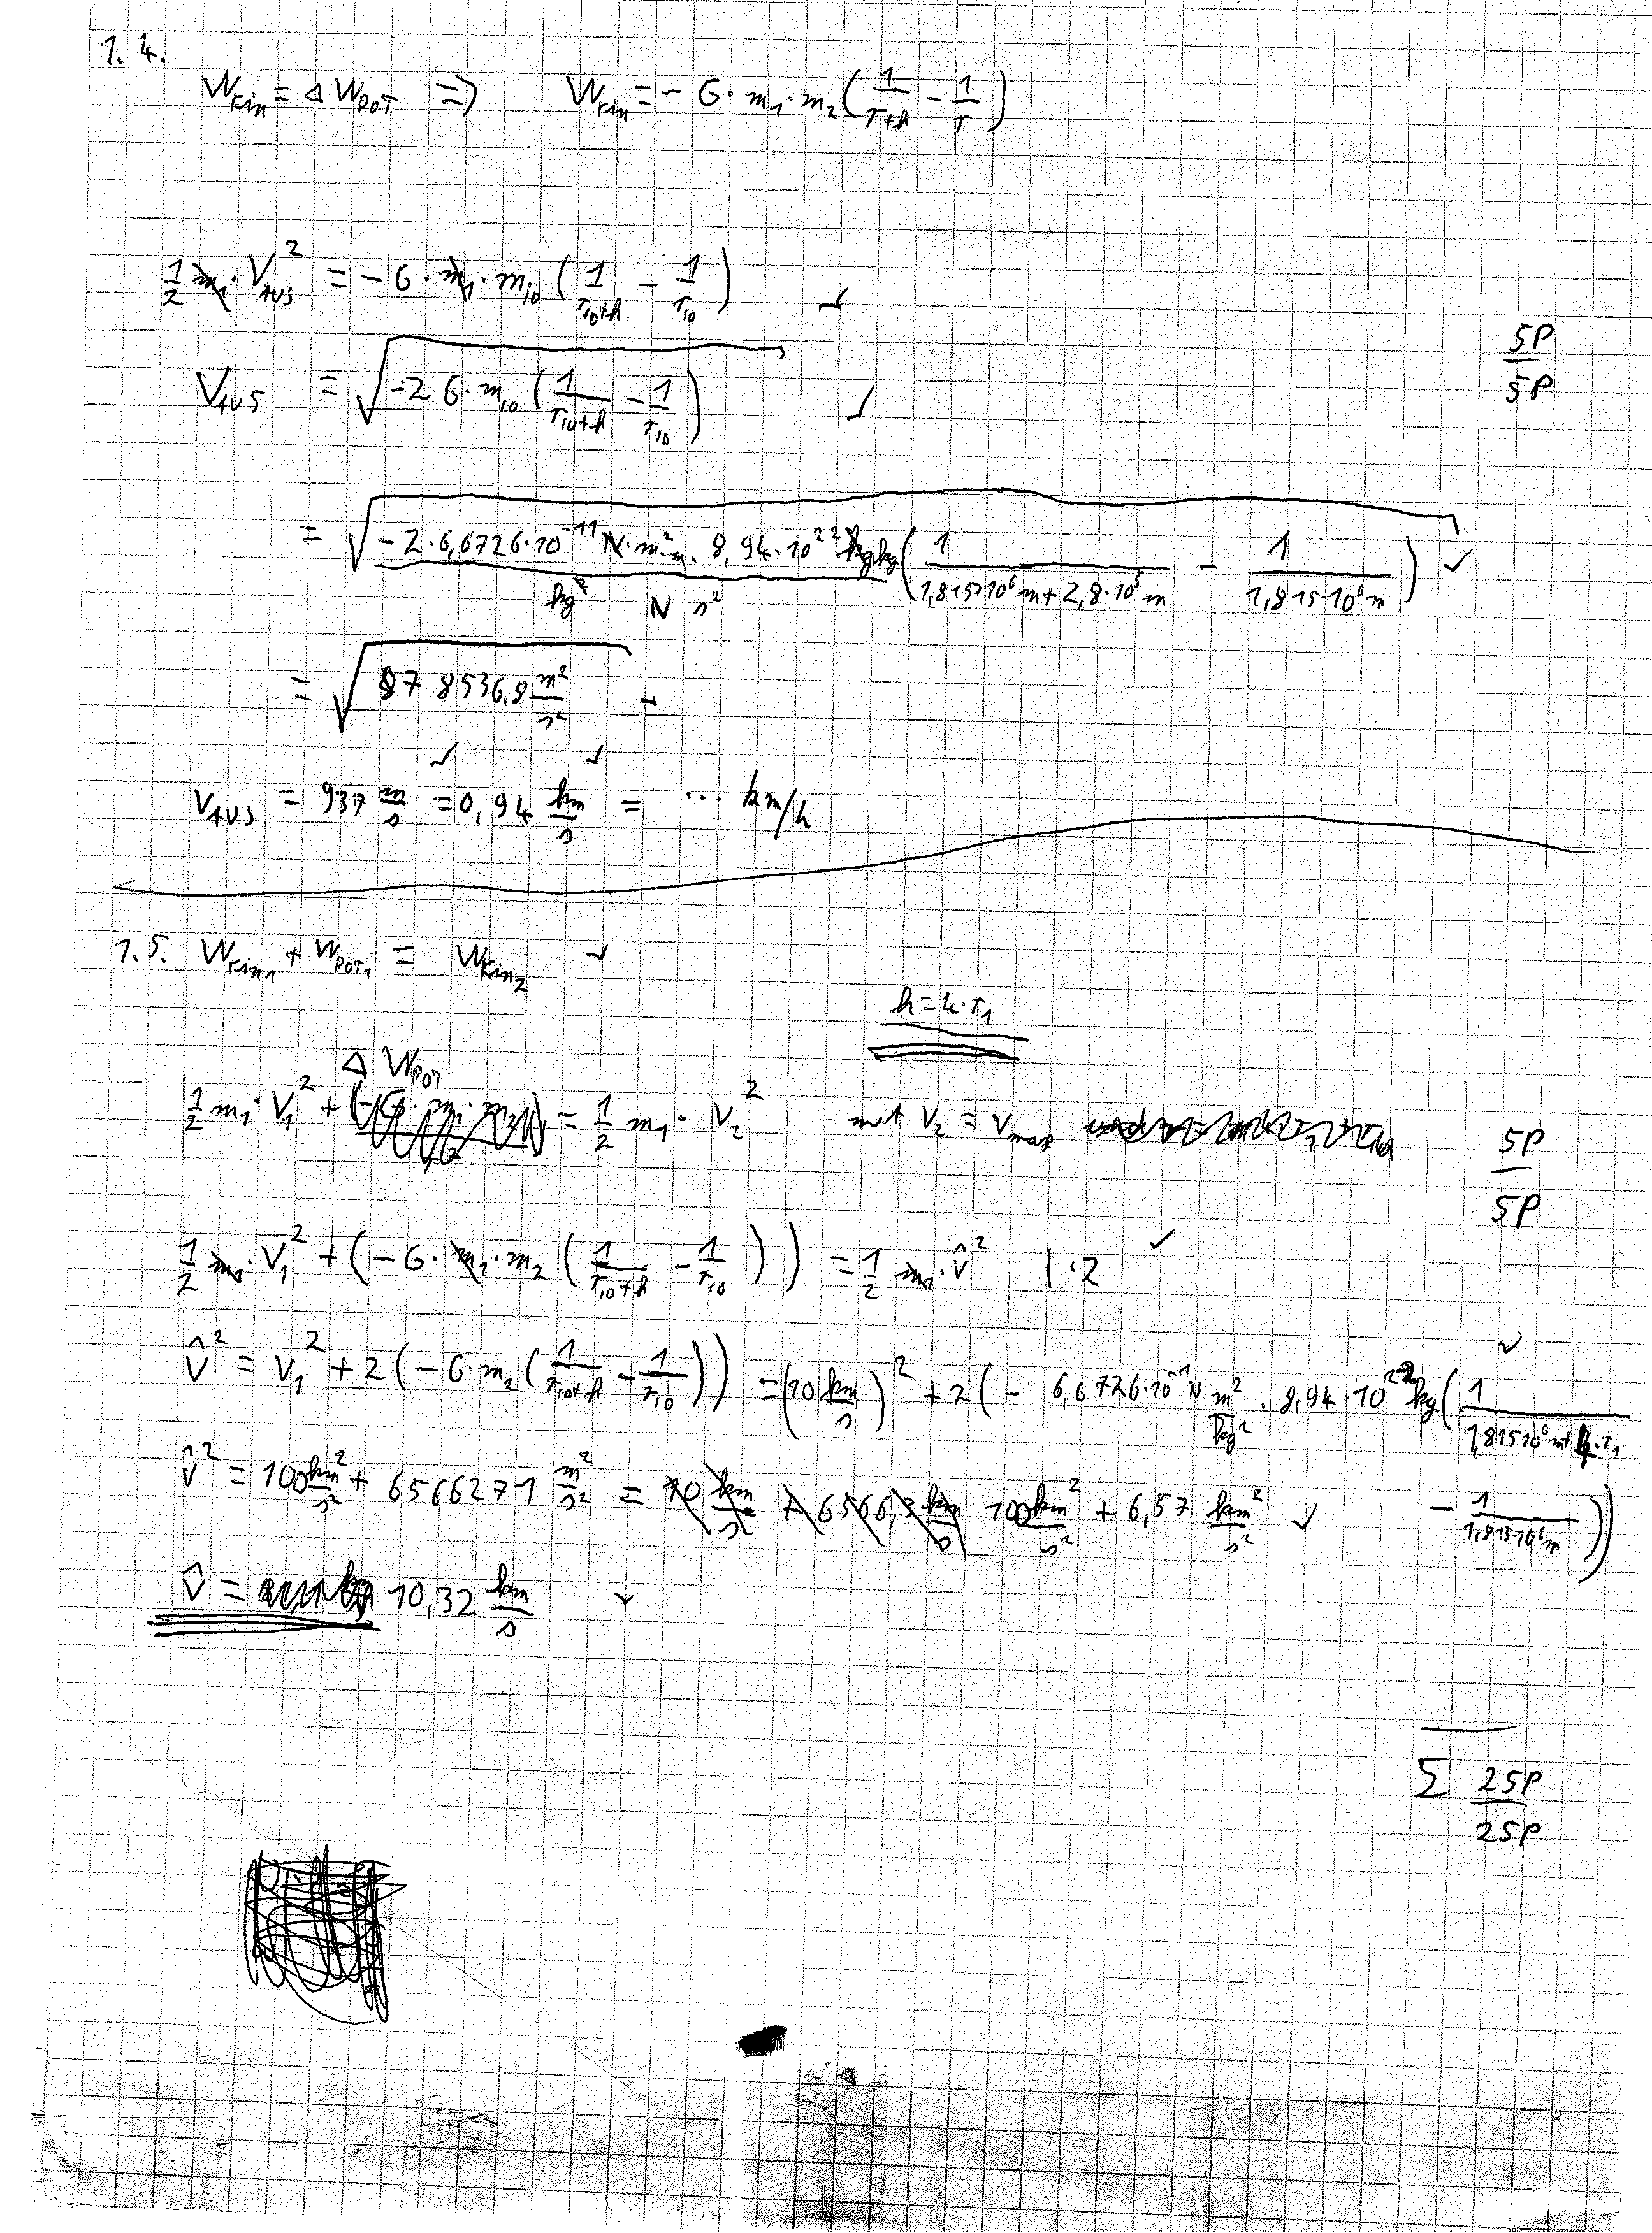 1.4.
W_kin = Δ W_POT => W_kin = - G · m₁ · m₂ (1/(r+h) - 1/r)
1/2 m₁ · V_AUS² = - G · m₁ · m_io (1/(r_io+h) - 1/r_io) ✓
5P/5P
V_AUS = √(-2 G · m_io (1/(r_io+h) - 1/r_io)) ✓
= √(-2 · 6,6726 · 10⁻¹¹ N · m² · m · 8,94 · 10²² kg kg / (kg² N s²) (1/(1,815 · 10⁶ m + 2,8 · 10⁵ m) - 1/(1,815 · 10⁶ m))) ✓
= √(878536,8 m²/s²) ✓
✓ ✓
V_AUS = 937 m/s = 0,94 km/s = ... km/h
1.5. W_kin1 + W_POT1 = W_kin2 ✓
h = 4 · r₁
Δ W_POT
1/2 m₁ · V₁² + = 1/2 m₁ · V₂² mit V₂ = V_max
5P/5P
1/2 m₁ · V₁² + (- G · m₁ · m₂ (1/(r_io+h) - 1/r_io)) = 1/2 m₁ · v̂² | · 2 ✓
v̂² = V₁² + 2 (- G · m₂ (1/(r_io+h) - 1/r_io)) = (10 km/s)² + 2 (- 6,6726 · 10⁻¹¹ N m²/kg² · 8,94 · 10²² kg (1/(1,815 10⁶ m + 4 · r₁) ✓
- 1/(1,815 · 10⁶ m)))
v̂² = 100 km²/s² + 6566271 m²/s² = 10 km/s + 6566,3 km/s 100 km²/s² + 6,57 km²/s² ✓
v̂ = 10,32 km/s ✓
Σ 25P/25P